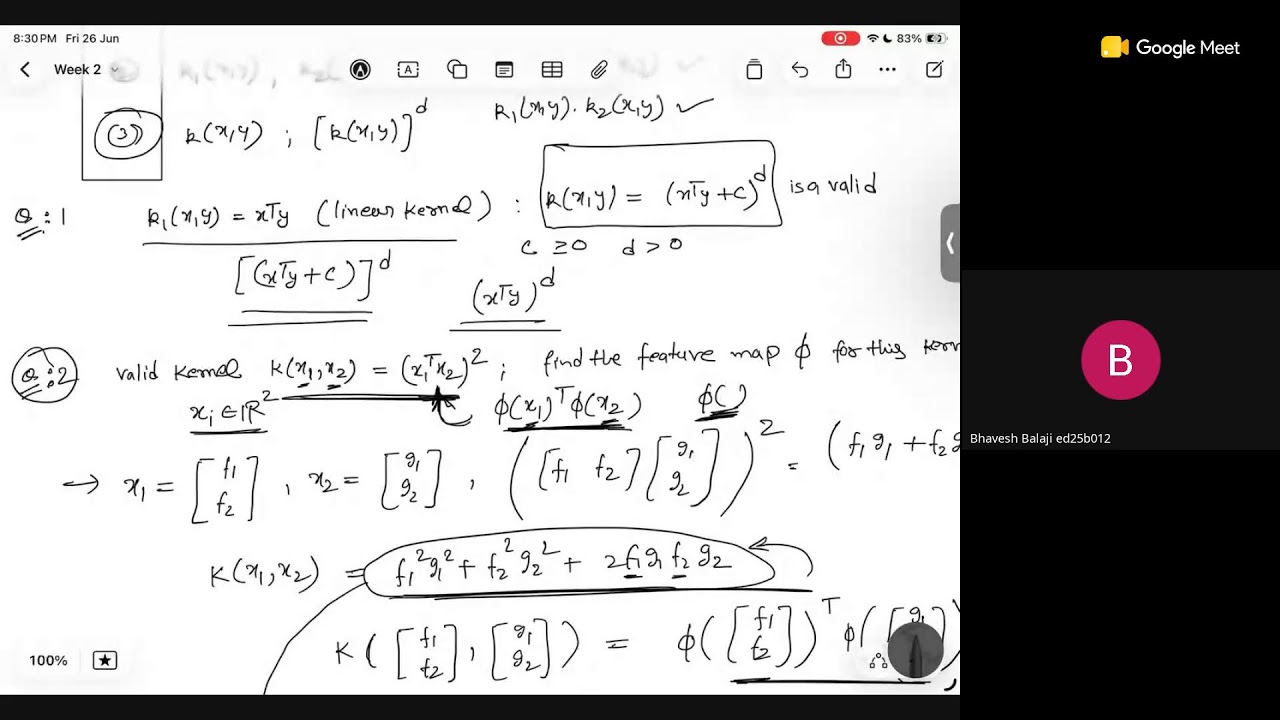 8:30 PM Fri 26 Jun
83%
Google Meet
Week 2
(3) k(x,y) ; [k(x,y)]^d k₁(x,y). k₂(x,y) ✓
Q:1 k₁(x,y) = xᵀy (linear kernel) : k(x,y) = (xᵀy + c)^d is a valid
c ≥ 0 d > 0
[(xᵀy + c)]^d (xᵀy)^d
Q:2 valid kernel k(x₁,x₂) = (x₁ᵀx₂)² ; find the feature map φ for this kern
xᵢ ∈ ℝ² φ(x₁)ᵀφ(x₂) φ()
→ x₁ = [f₁ f₂] , x₂ = [g₁ g₂] , ([f₁ f₂] [g₁ g₂])² = (f₁g₁ + f₂g
K(x₁,x₂) = f₁²g₁² + f₂²g₂² + 2f₁g₁f₂g₂
K([f₁ f₂] , [g₁ g₂]) = φ([f₁ f₂])ᵀ φ([g₁
100%
B
Bhavesh Balaji ed25b012